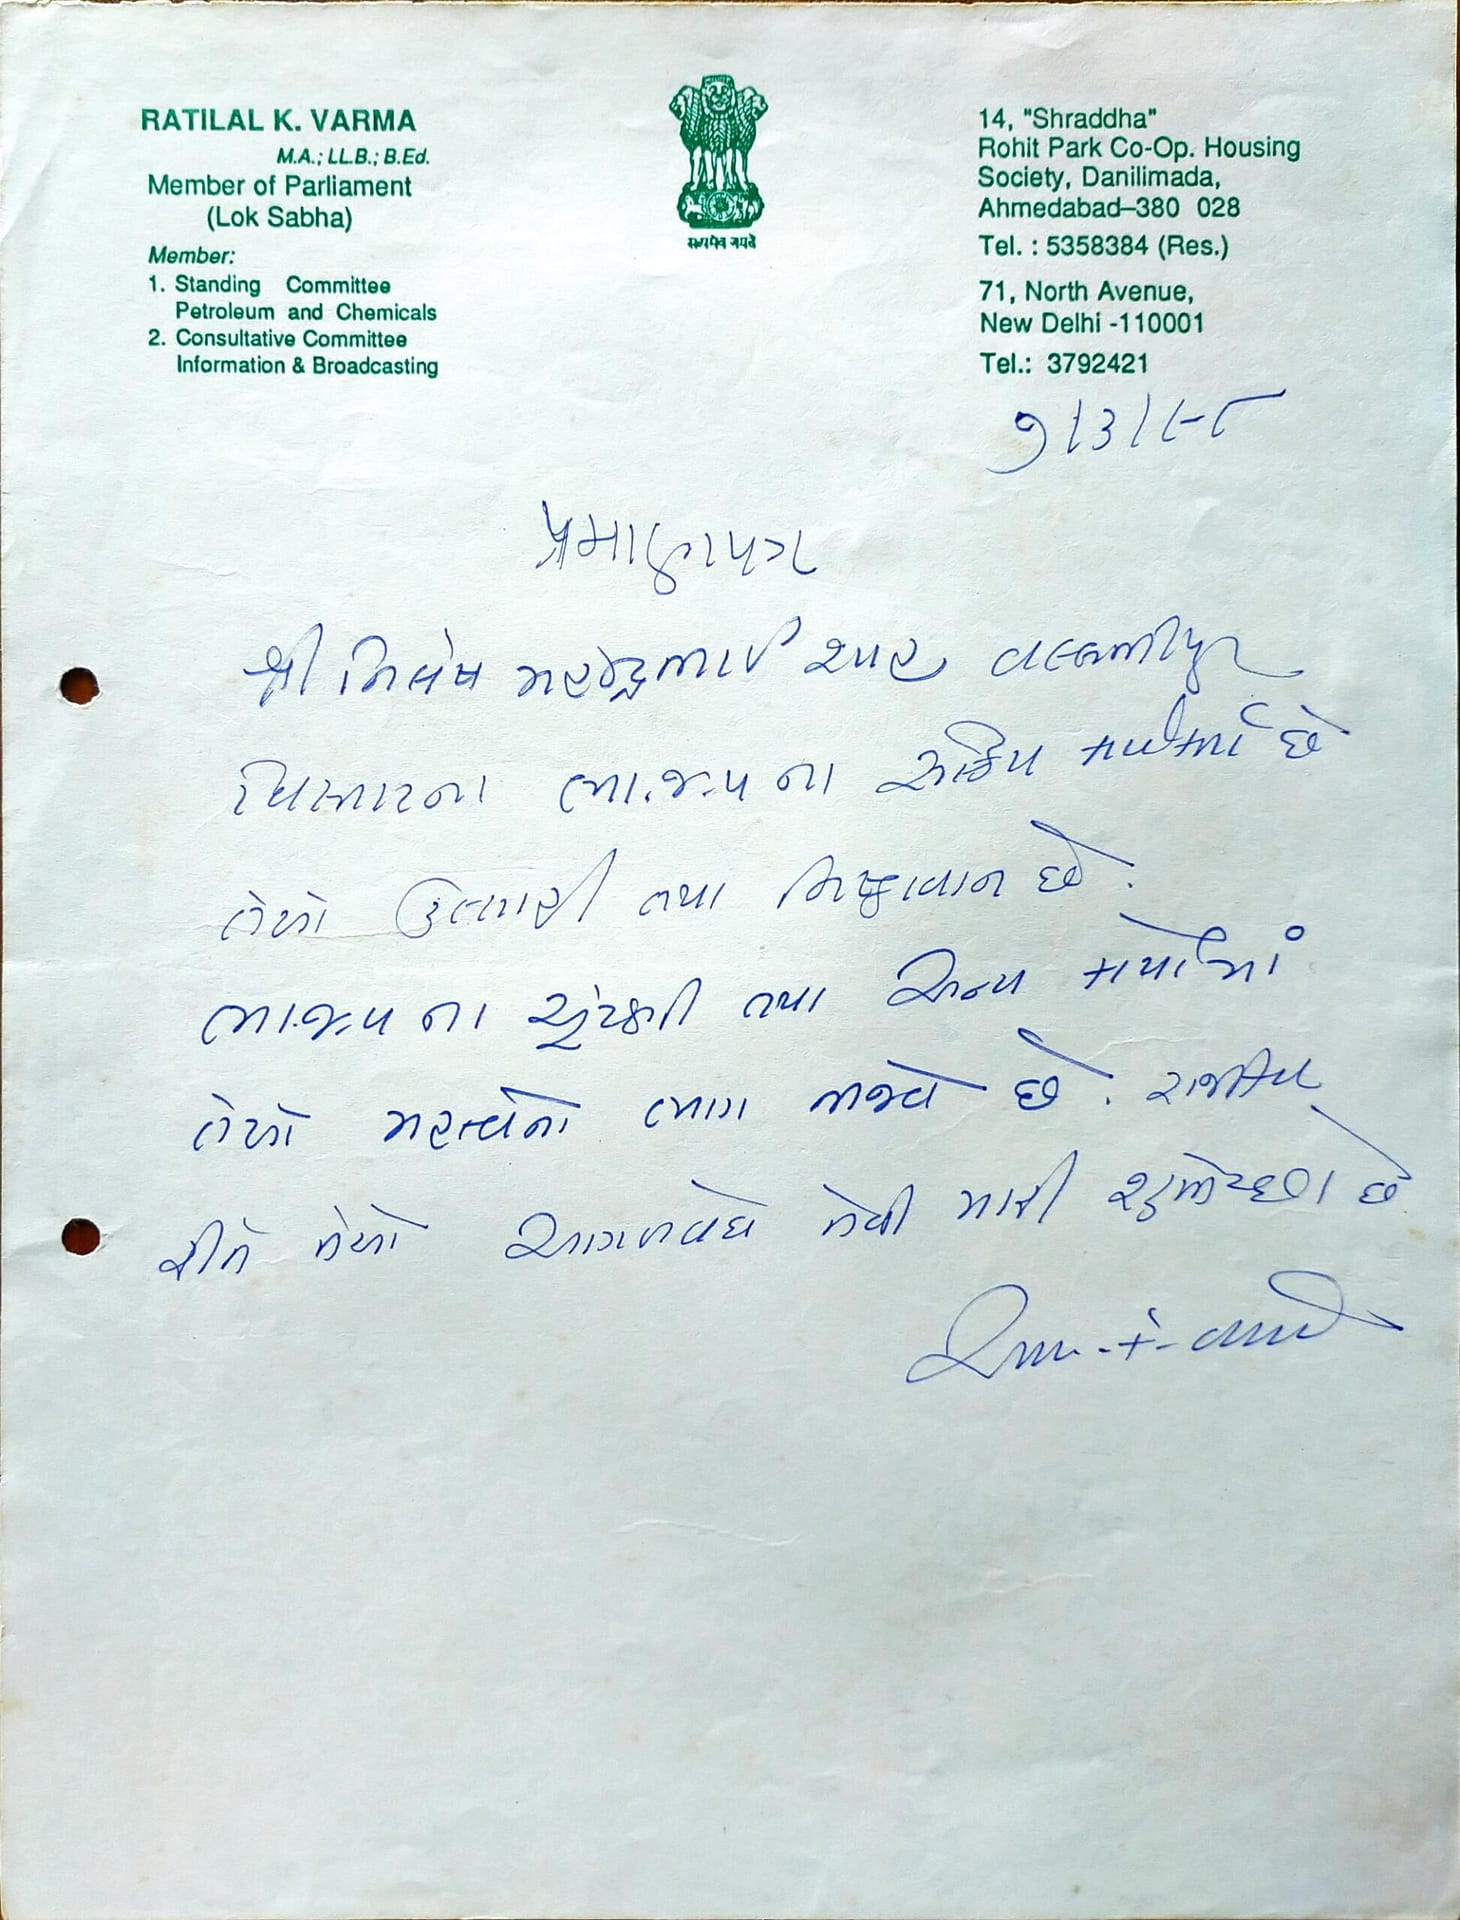 RATILAL K. VARMA
M.A.; LL.B.; B.Ed.
Member of Parliament
(Lok Sabha)
Member:
1. Standing Committee
Petroleum and Chemicals
2. Consultative Committee
Information & Broadcasting
सत्यमेव जयते
14, "Shraddha"
Rohit Park Co-Op. Housing
Society, Danilimada,
Ahmedabad–380 028
Tel. : 5358384 (Res.)
71, North Avenue,
New Delhi -110001
Tel.: 3792421
૭/૩/૯૮
પ્રમાણપત્ર
શ્રી નિલેષ
વિસ્તારના ભા.જ.પ ના સક્રિય કાર્યકર્તા છે
તેઓ ઉત્સાહી તથા નિષ્ઠાવાન છે.
ભા.જ.પ ના ચુંટણી તથા અન્ય કાર્યોમાં
તેઓ મહત્વનો ભાગ ભજવે છે. રાજકીય
રીતે તેઓ આગળ વધે તેવી મારી શુભેચ્છા છે